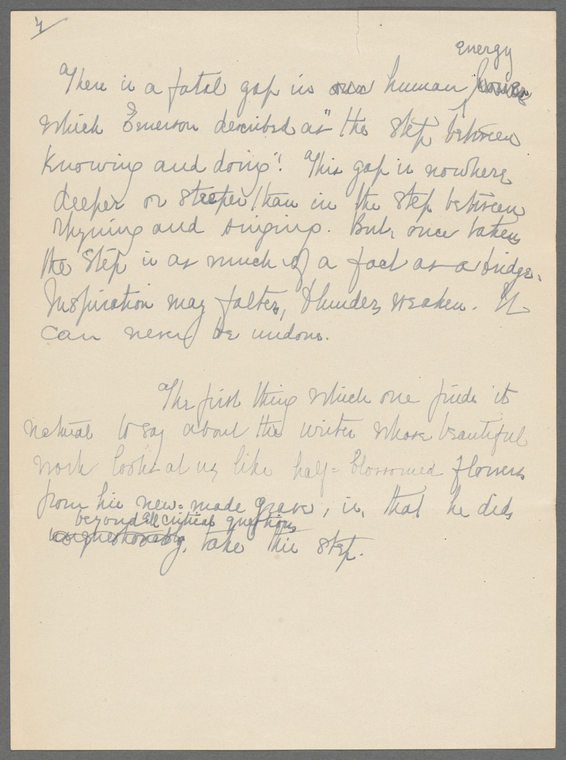 energy
There is a fatal gap in our human
which Emerson described as "the step between
knowing and doing"! This gap is nowhere
deeper or steeper than in the step between
rhyming and singing. But, once taken
the step is as much of a fact as a bridge.
Inspiration may falter, blunder, weaken. It
can never be undone.
The first thing which one finds it
natural to say about the writer whose beautiful
work looks at us like half-blossomed flowers
from his new-made grave, is, that he did,
beyond all critical questions
unquestionably, take this step.